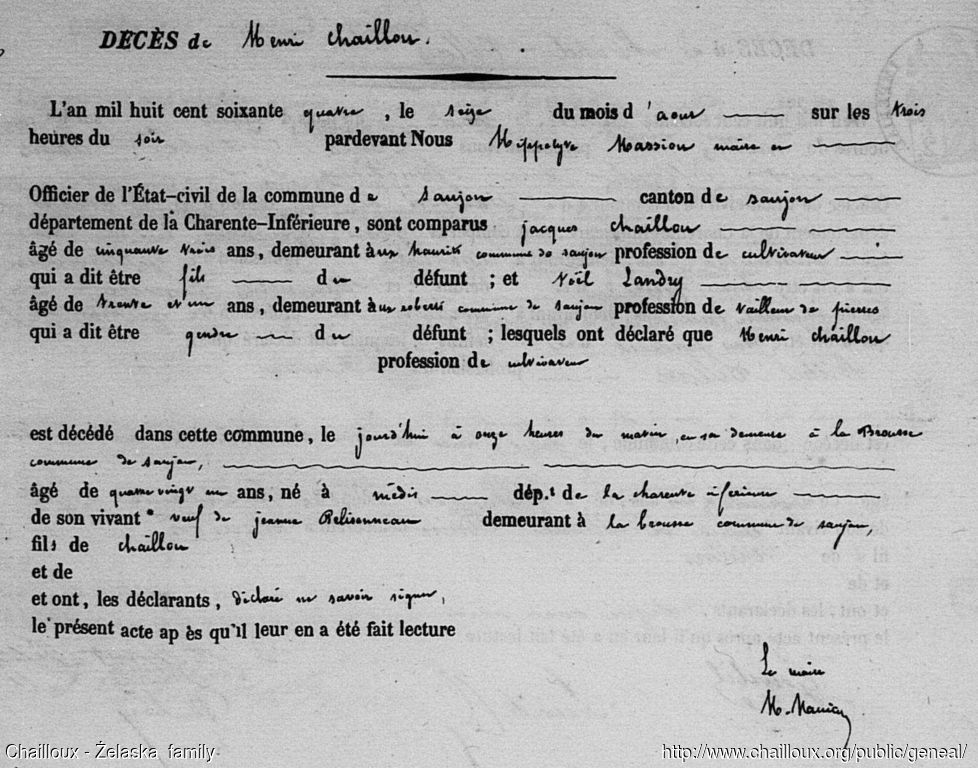 DÉCÈS de Henri Chaillou.
L'an mil huit cent soixante quatre, le seize du mois d'aout sur les trois
heures du soir pardevant Nous Hippolyte Massion maire en
Officier de l'État-civil de la commune de Saujon canton de saujon
département de la Charente-Inférieure, sont comparus jacques chaillou
âgé de cinquante trois ans, demeurant à commune de saujon profession de cultivateur
qui a dit être fils du défunt ; et Noël Landry
âgé de trente et un ans, demeurant à commune de saujon profession de tailleur de pierres
qui a dit être gendre du défunt ; lesquels ont déclaré que Henri chaillou
profession de cultivateur
est décédé dans cette commune, le jourd'hui à onze heures du matin, en sa demeure à la Brousse
commune de saujon,
âgé de quatre vingt un ans, né à médis dép.t de la charente inférieure
de son vivant veuf de jeanne demeurant à la brousse commune de saujon,
fils de chaillou
et de
et ont, les déclarants, déclaré ne savoir signer,
le présent acte ap ès qu'il leur en a été fait lecture
Le maire
H. Massion
Chailloux - Żelaska family http://www.chailloux.org/public/geneal/